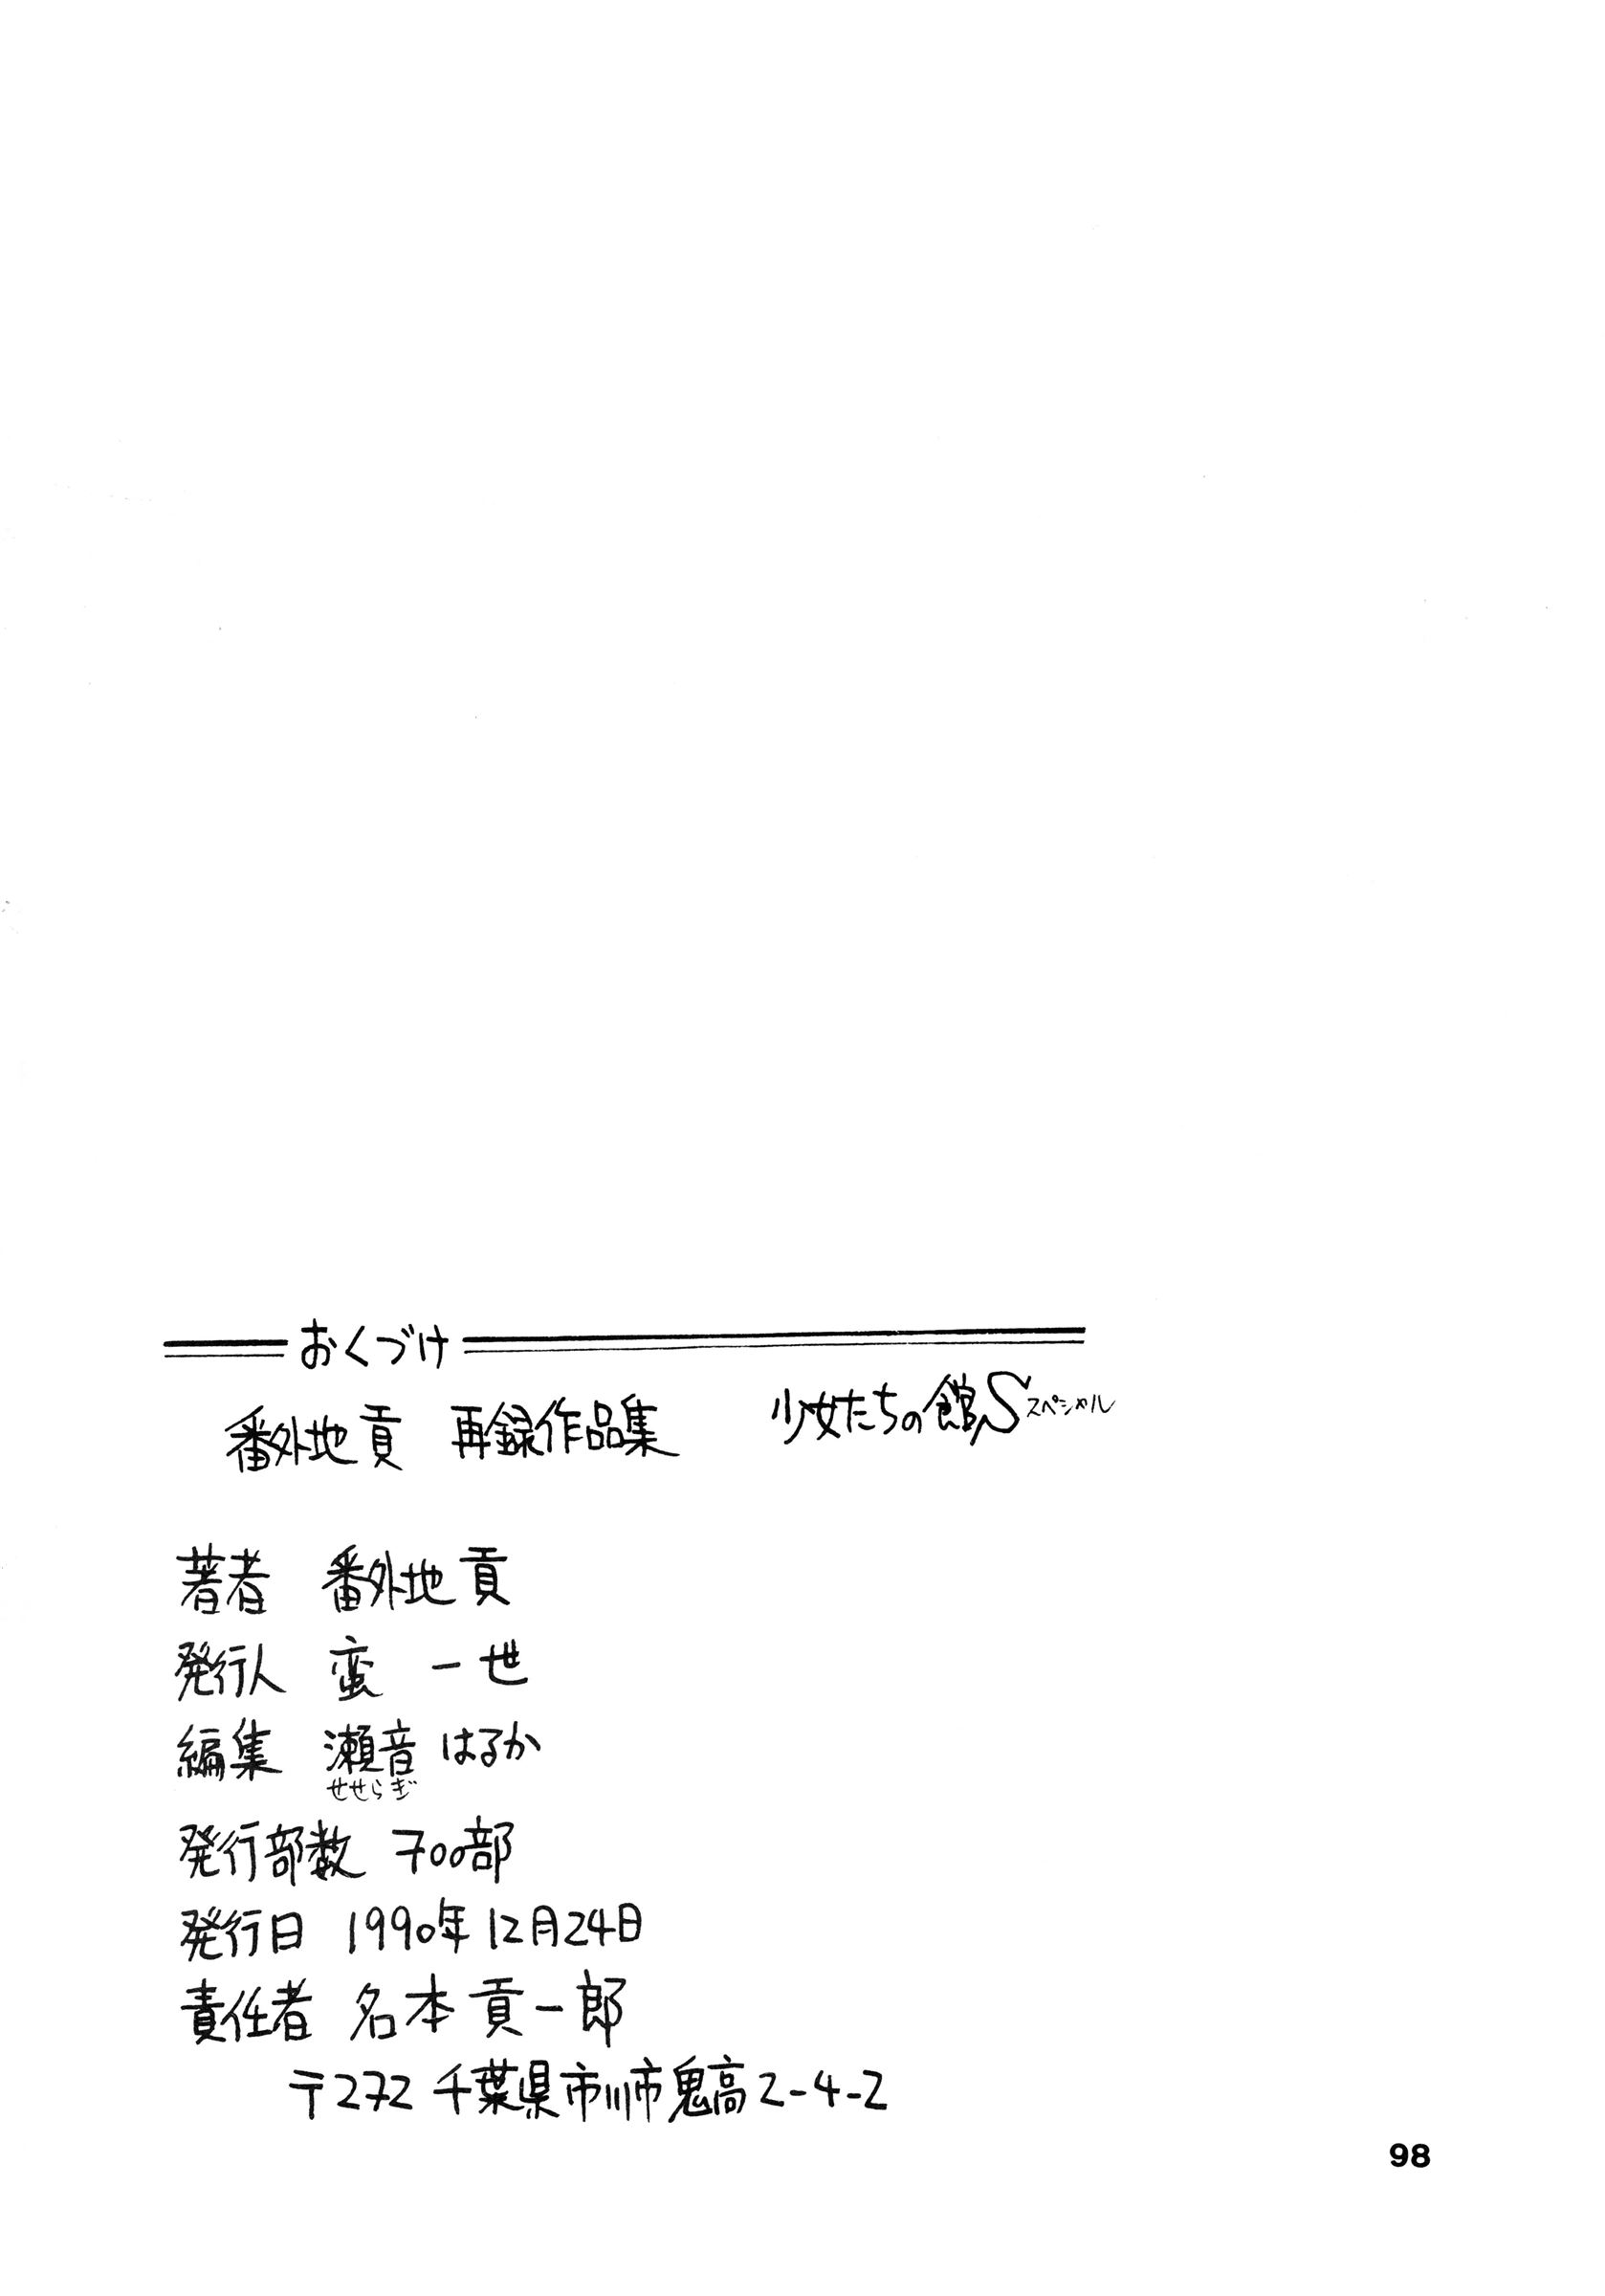 おくづけ
番外地貢 再録作品集 少女たちの館S スペシャル
著者 番外地貢
発行人 蛮 一世
編集 瀬音はるか
せせらぎ
発行部数 700部
発行日 1990年12月24日
責任者 名本貢一郎
〒272 千葉県市川市鬼高2-4-2
98